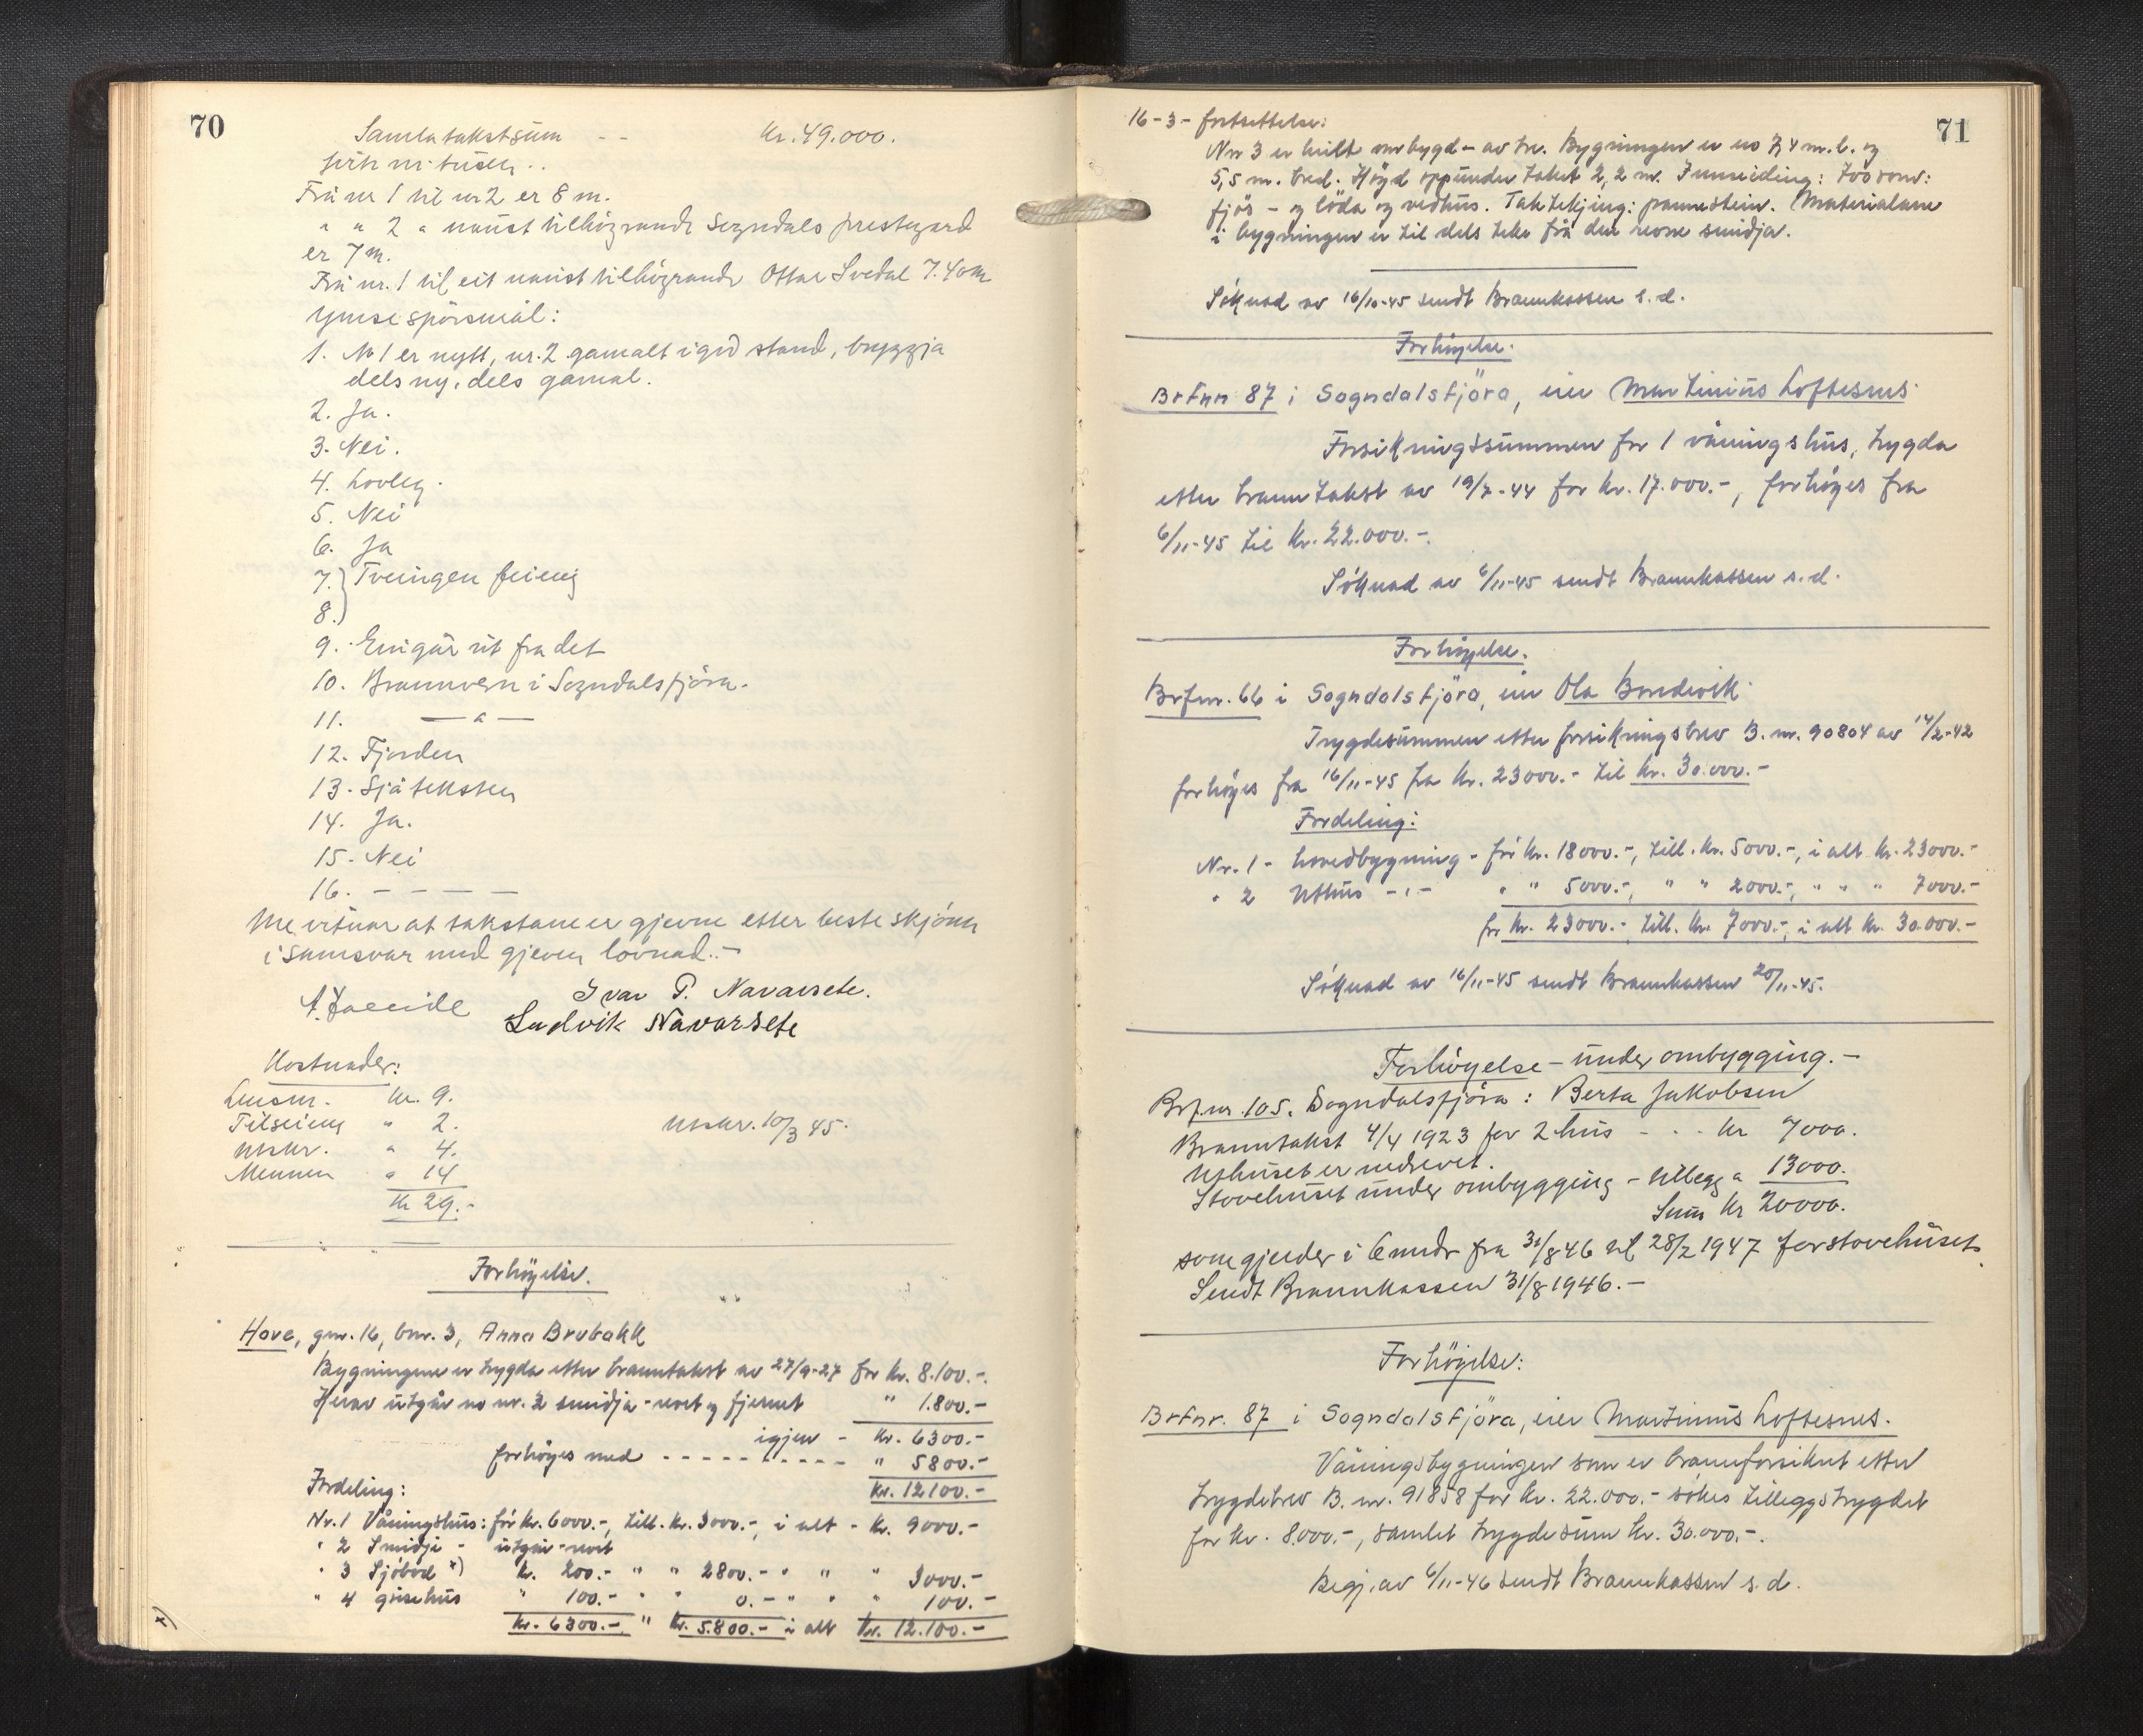 70
Samla takstsum - - Kr. 49.000.
førti ni tusen..
Frå nr 1 til nr 2 er 8 m.
" " 2 " naust tilhøgrande Sogndals prestegard
er 7 m.
Frå nr. 1 til eit naust tilhøgrande Ottar Svedal 7.40 m
Ymse spørsmål:
1. No 1 er nytt, nr. 2 gamalt i god stand, bryggja
dels ny, dels gamal.
2. Ja.
3. Nei.
4. Lovleg.
5. Nei
6. Ja
7.} Tveingen feieng
8.}
9. Ein går ut fra det
10. Brannvern i Sogndalsfjöra.
11. — " —
12. Fjorden
13. Sjåteksten
14. Ja.
15. Nei
16. - - - -
Me vitnar at takstane er gjevne etter beste skjönn
i samsvar med gjeven lovnad. -
Ivar P. Navarsete.
Ludvik Navarsete
Kostnader:
Lensm. kr. 9.
Tilseieng " 2.
Utskr. " 4. Utskr. 10/3 45.
Mennen " 14
Kr 29.-
Forhöyelse.
Hove, gnr. 16, bnr. 3, Anna Brubakk
Bygningene er trygda etter branntakst av 27/9-27 for kr. 8.100.-.
Herav utgår no nr. 2 smidja - revet og fjernet " 1.800.-
igjen - kr. 6300.-
forhöyes med - - - - - - - - - " 5800.-
Fordeling: Kr. 12100.-
Nr. 1 Våningshus: før kr. 6000.-, till. kr. 3000.-, i alt - kr. 9000.-
" 2 Smidje - utgår - revet
" 3 Sjöbod x) kr. 200.- " " 2800.- " " " 3000.-
" 4 grisehus " 100.- " " 0.- " " " 100.-
x) kr. 6300.- " kr. 5.800.- i alt kr. 12.100.-
71
16-3- fortsettelse:
Nr 3 er heilt ombygd - av tre. Bygningen er no 7,4 m. l. og
5,5 m. bred. Høgd oppunder taket 2,2 m. Innreiing: 
fjös - og löda og vedhus. Taktekjing: pannestein. Materialane
i bygningen er til dels teke frå den revne smidja.
Söknad av 16/10-45 sendt Brannkassen s. d.
Forhöyelse.
Brfnr 87 i Sogndalsfjöra, eier Martinius Loftesnes.
Forsikringssummen for 1 våningshus, trygda
etter branntakst av 19/7-44 for kr. 17.000.-, forhöyes fra
6/11-45 til kr. 22.000.-.
Söknad av 6/11-45 sendt Brannkassen s. d.
Forhöyelse.
Brfnr. 66 i Sogndalsfjöra, eier Ola Bondevik.
Trygdesummen etter forsikringsbrev B. nr. 90804 av 14/2-42
forhöyes fra 16/11-45 fra kr. 23000.- til kr. 30.000.-
Fordeling:
Nr. 1 - hovedbygning - för kr. 18000.-, till. kr. 5000.-, i alt kr. 23000.-
" 2 Uthus - " - " " 5000.-, " " 2000.-, " " " 7000.-
för kr. 23000.- till. kr. 7000.-, i alt kr. 30.000.-
Söknad av 16/11-45 sendt Brannkassen 20/11-45.
Forhöyelse - under ombygging. -
Brf.nr. 105. Sogndalsfjöra: Berta Jakobsen
Branntakst 4/4 1923 for 2 hus - - - kr 7000.
Uthuset er nedrevet.
Stovehuset under ombygging - tillegg " 13000.
Sum kr 20000.
som gjelder i 6 mndr fra 31/8 46 til 28/2 1947 for stovehuset.
Sendt Brannkassen 31/8 1946. -
Forhöyelse:
Brfnr. 87 i Sogndalsfjöra, eier Martinius Loftesnes.
Våningsbygningen som er brannforsikret etter
trygdebrev B. nr. 91858 for kr. 22.000.- sökes tilleggstrygdet
for kr. 8.000.-, samlet trygdesum kr. 30.000.-.
Begj. av 6/11-46 sendt Brannkassen s. d.